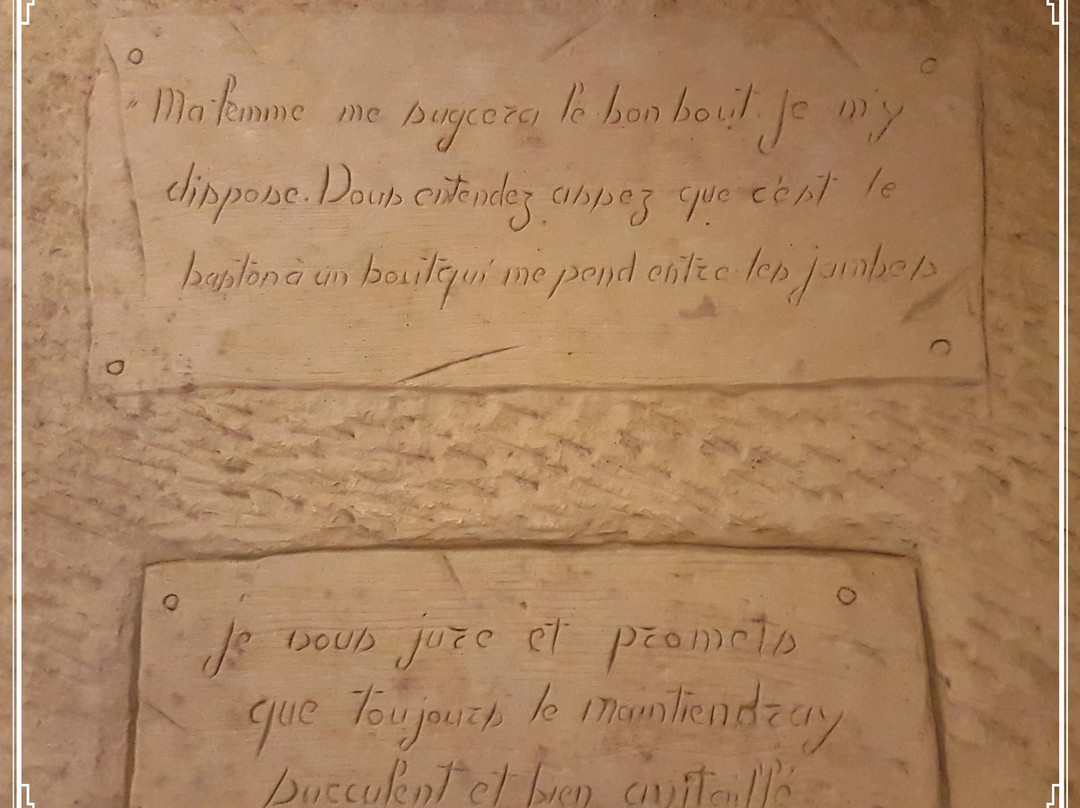 " Ma femme me sugcera le bon bout. Je m'y
dispose. Vous entendez assez que c'est le
baston à un bout qui me pend entre les jambes
Je vous jure et promets
que toujours le maintiendray
succulent et bien avitaillé